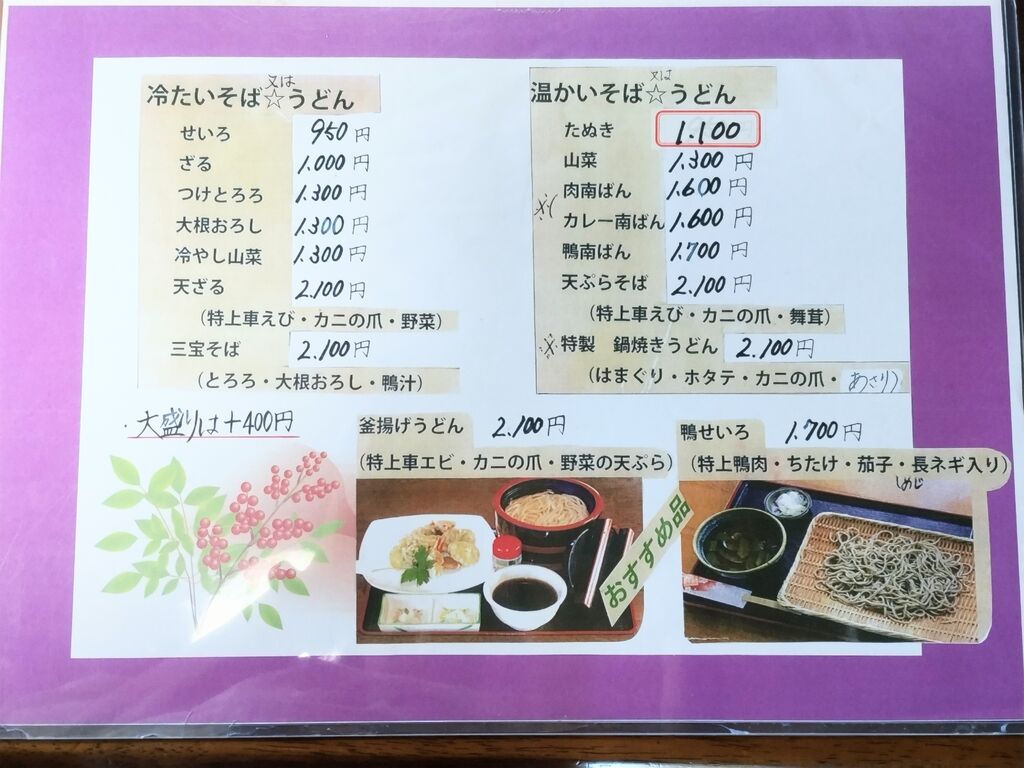 冷たいそば又は☆うどん
せいろ 950円
ざる 1.000円
つけとろろ 1.300円
大根おろし 1.300円
冷やし山菜 1.300円
天ざる 2.100円
(特上車えび・カニの爪・野菜)
三宝そば 2.100円
(とろろ・大根おろし・鴨汁)
・大盛りは+400円
温かいそば又は☆うどん
たぬき 1.100
山菜 1.300円
肉南ばん 1.600円
※( カレー南ばん 1.600円
鴨南ばん 1.700円
天ぷらそば 2.100円
(特上車えび・カニの爪・舞茸)
※特製 鍋焼きうどん 2.100円
(はまぐり・ホタテ・カニの爪・あさり)
釜揚げうどん 2.100円
(特上車エビ・カニの爪・野菜の天ぷら)
おすすめ品
鴨せいろ 1.700円
(特上鴨肉・ちたけ・茄子・長ネギ入り)
しめじ